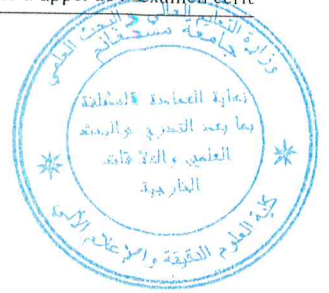 d'appel de l'examen écrit
وزارة التعليم العالي والبحث العلمي
جامعة مستغانم
نيابة العمادة المكلفة
بما بعد التدرج والبحث
العلمي والعلاقات
الخارجية
كلية العلوم الدقيقة والإعلام الآلي